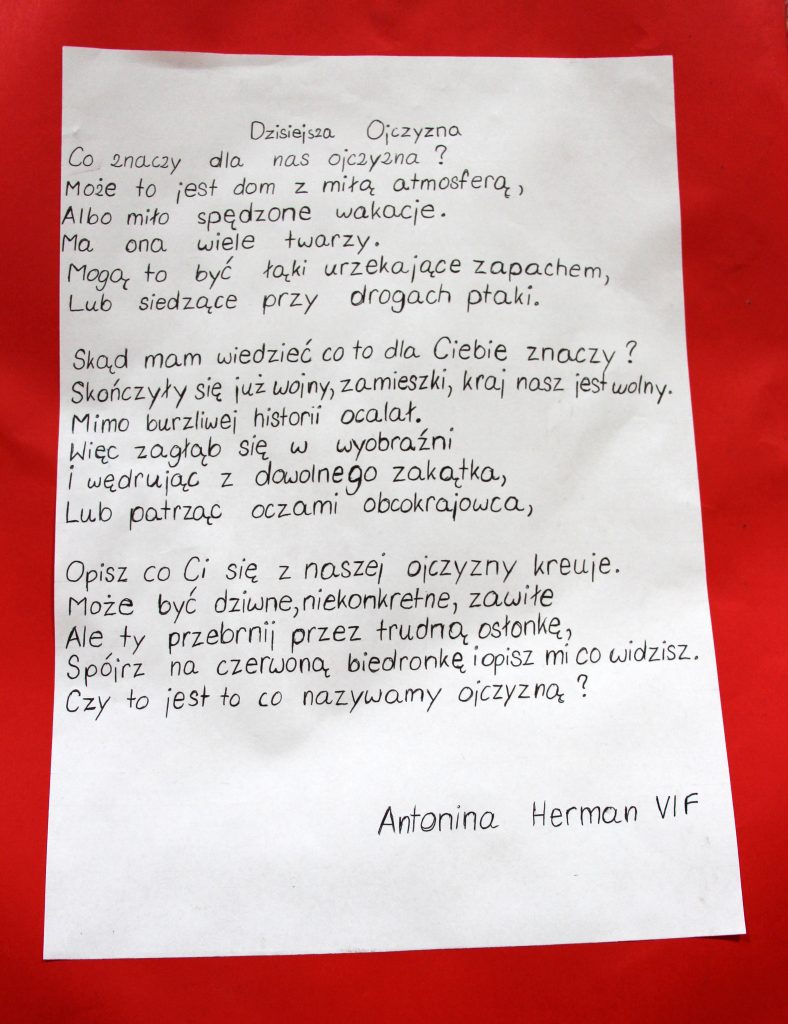 Dzisiejsza Ojczyzna
Co znaczy dla nas ojczyzna ?
Może to jest dom z miłą atmosferą,
Albo miło spędzone wakacje.
Ma ona wiele twarzy.
Mogą to być łąki urzekające zapachem,
Lub siedzące przy drogach ptaki.
Skąd mam wiedzieć co to dla Ciebie znaczy ?
Skończyły się już wojny, zamieszki, kraj nasz jest wolny.
Mimo burzliwej historii ocalał.
Więc zagłąb się w wyobraźni
i wędrując z dowolnego zakątka,
Lub patrząc oczami obcokrajowca,
Opisz co Ci się z naszej ojczyzny kreuje.
Może być dziwne, niekonkretne, zawiłe
Ale ty przebrnij przez trudną osłonkę,
Spójrz na czerwoną biedronkę i opisz mi co widzisz.
Czy to jest to co nazywamy ojczyzną ?
Antonina Herman VI F